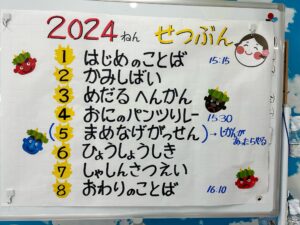 2024ねん せつぶん
1 はじめのことば 15:15
2 かみしばい
3 めだる へんかん
4 おにのパンツリレー 15:30
(5 まめなげがっせん) → じかんが あまったら
6 ひょうしょうしき
7 しゃしんさつえい
8 おわりのことば 16:10